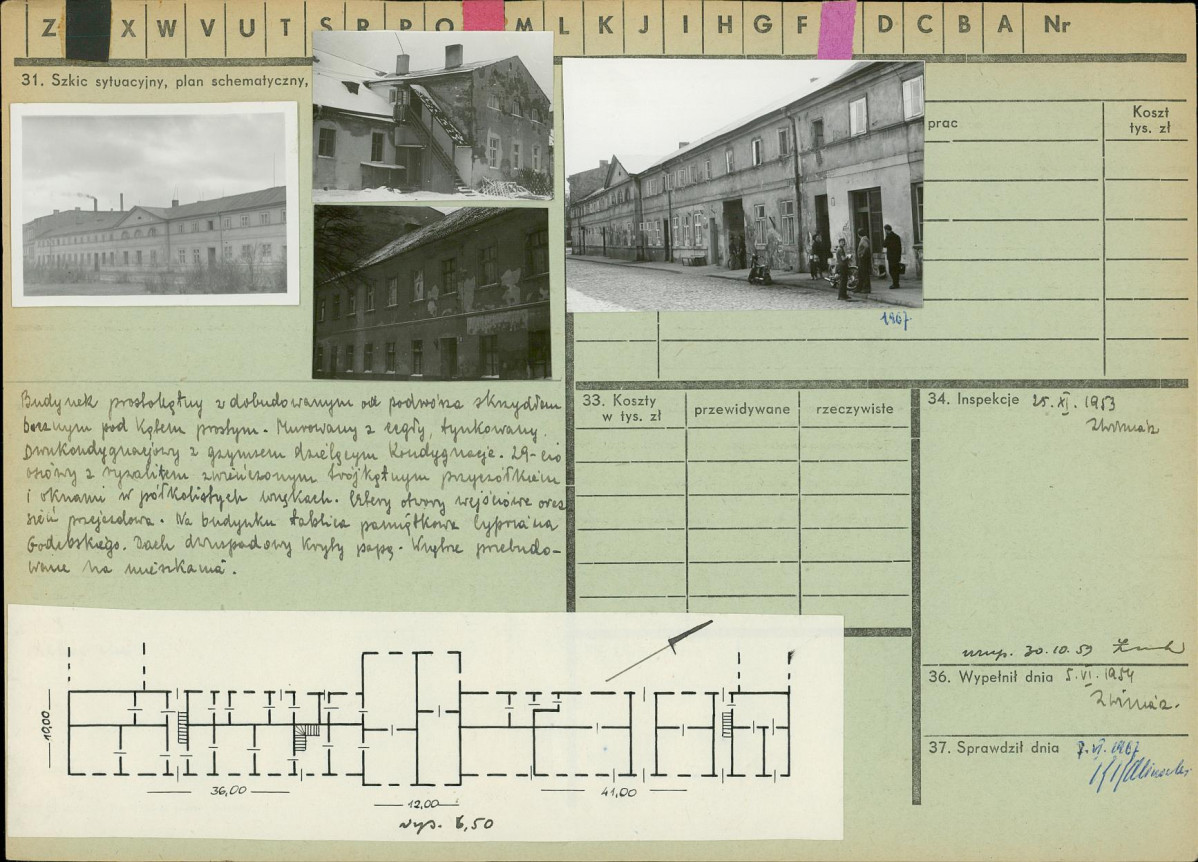 Z X W V U T S R P O M L K J I H G F D C B A Nr
31. Szkic sytuacyjny, plan schematyczny,
prac
Koszt
tys. zł
1967
Budynek prostokątny z dobudowanym od podwórza skrzydłem
bocznym pod kątem prostym. Murowany z cegły, tynkowany.
Dwukondygnacjowy z gzymsem dzielącym kondygnacje. 29-cio
osiowy z ryzalitem zwieńczonym trójkątnym przyczółkiem
i oknami w półkolistych wnękach. Cztery otwory wejściowe oraz
sień przejazdowa. Na budynku tablica pamiątkowa Cypriana
Godebskiego. Dach dwuspadowy kryty papą. Wnętrze przebudo-
wane na mieszkania.
33. Koszty
w tys. zł
przewidywane
rzeczywiste
34. Inspekcje 25.XI.1953
30.10.59
36. Wypełnił dnia 5.VI.1954
37. Sprawdził dnia 7.VI.1967
10,00
36,00
12,00
41,00
wys. 6,50